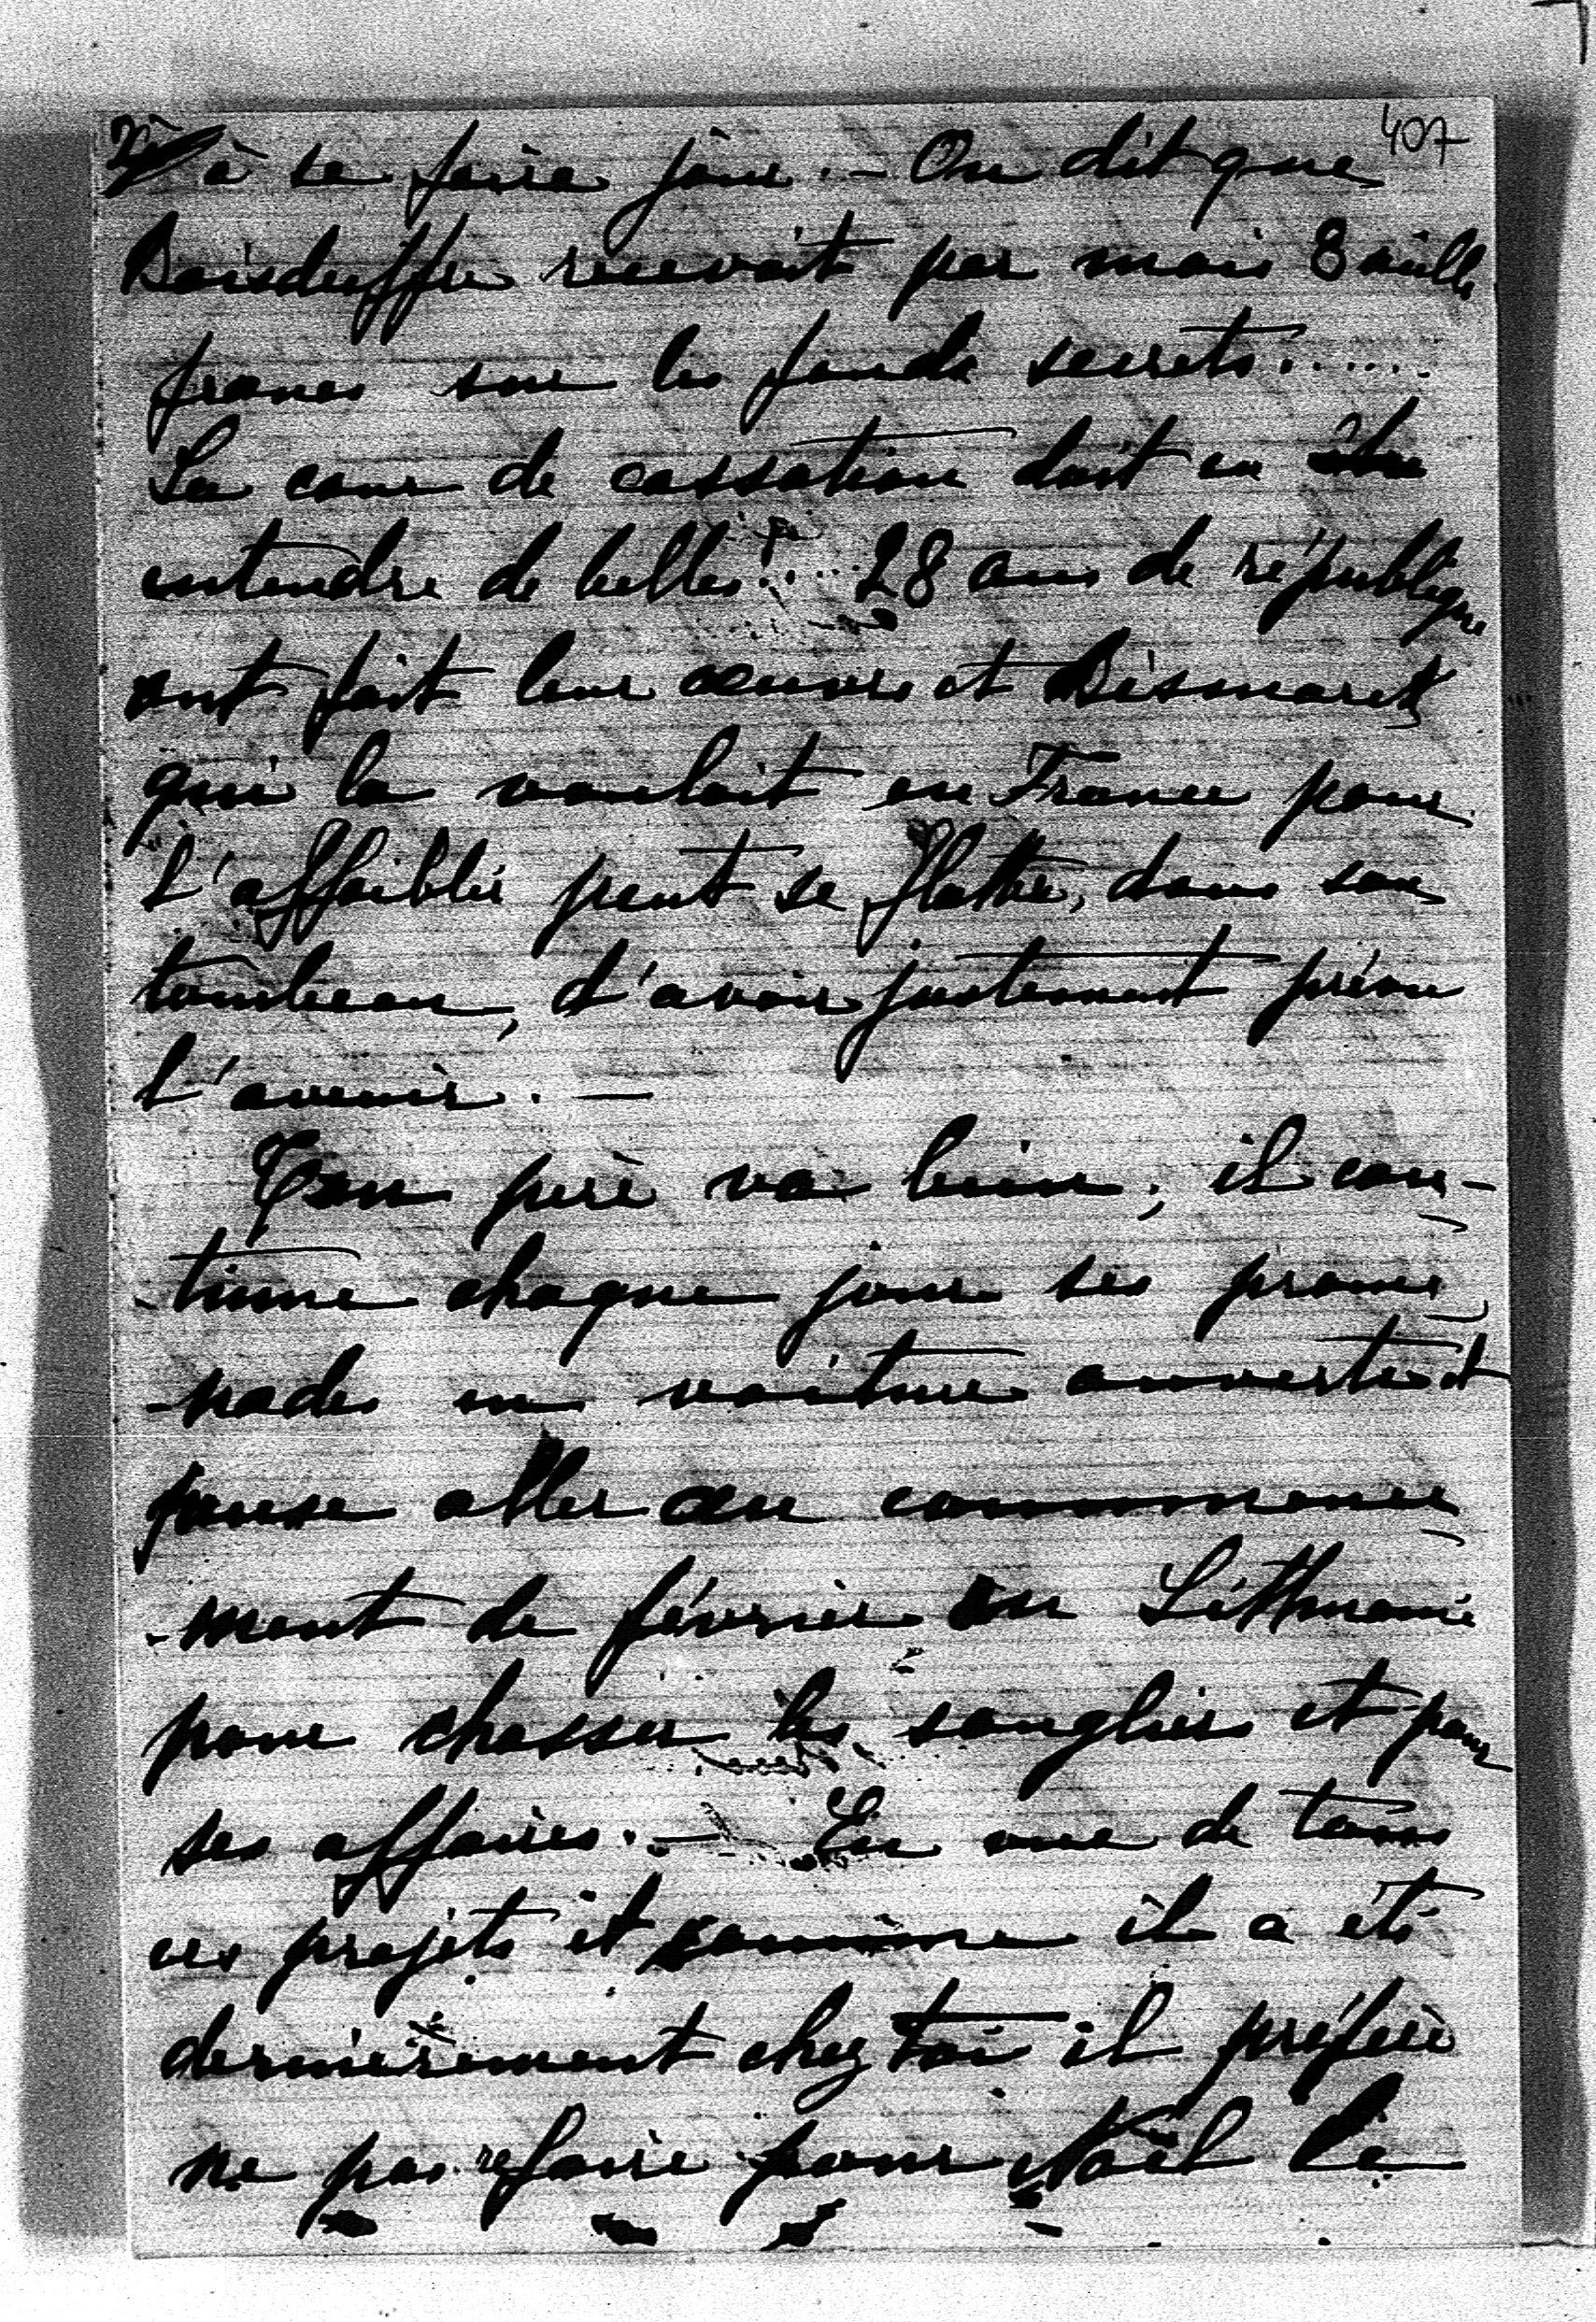 407
2) à se faire jour. — On dit que
Boisdeffre recevait par mois 8 mille
francs sur les fonds secrets......
La cour de cassation doit en
entendre de belles..... 28 ans de république
ont fait leur œuvre et Bismarck
qui la voulait en France pour
l'affaiblir peut se flatter, dans son
tombeau, d'avoir justement prévu
l'avenir. —
Ton père va bien; il con-
-tinue chaque jour ses prome
-nades en voiture ouverte et
pense aller au commence
-ment de février en Litthuanie
pour chasser les sanglier et pour
ses affaires. — En vue de tous
ces projets et comme il a été
dernièrement chez toi il préfère
ne pas refaire pour Noël le